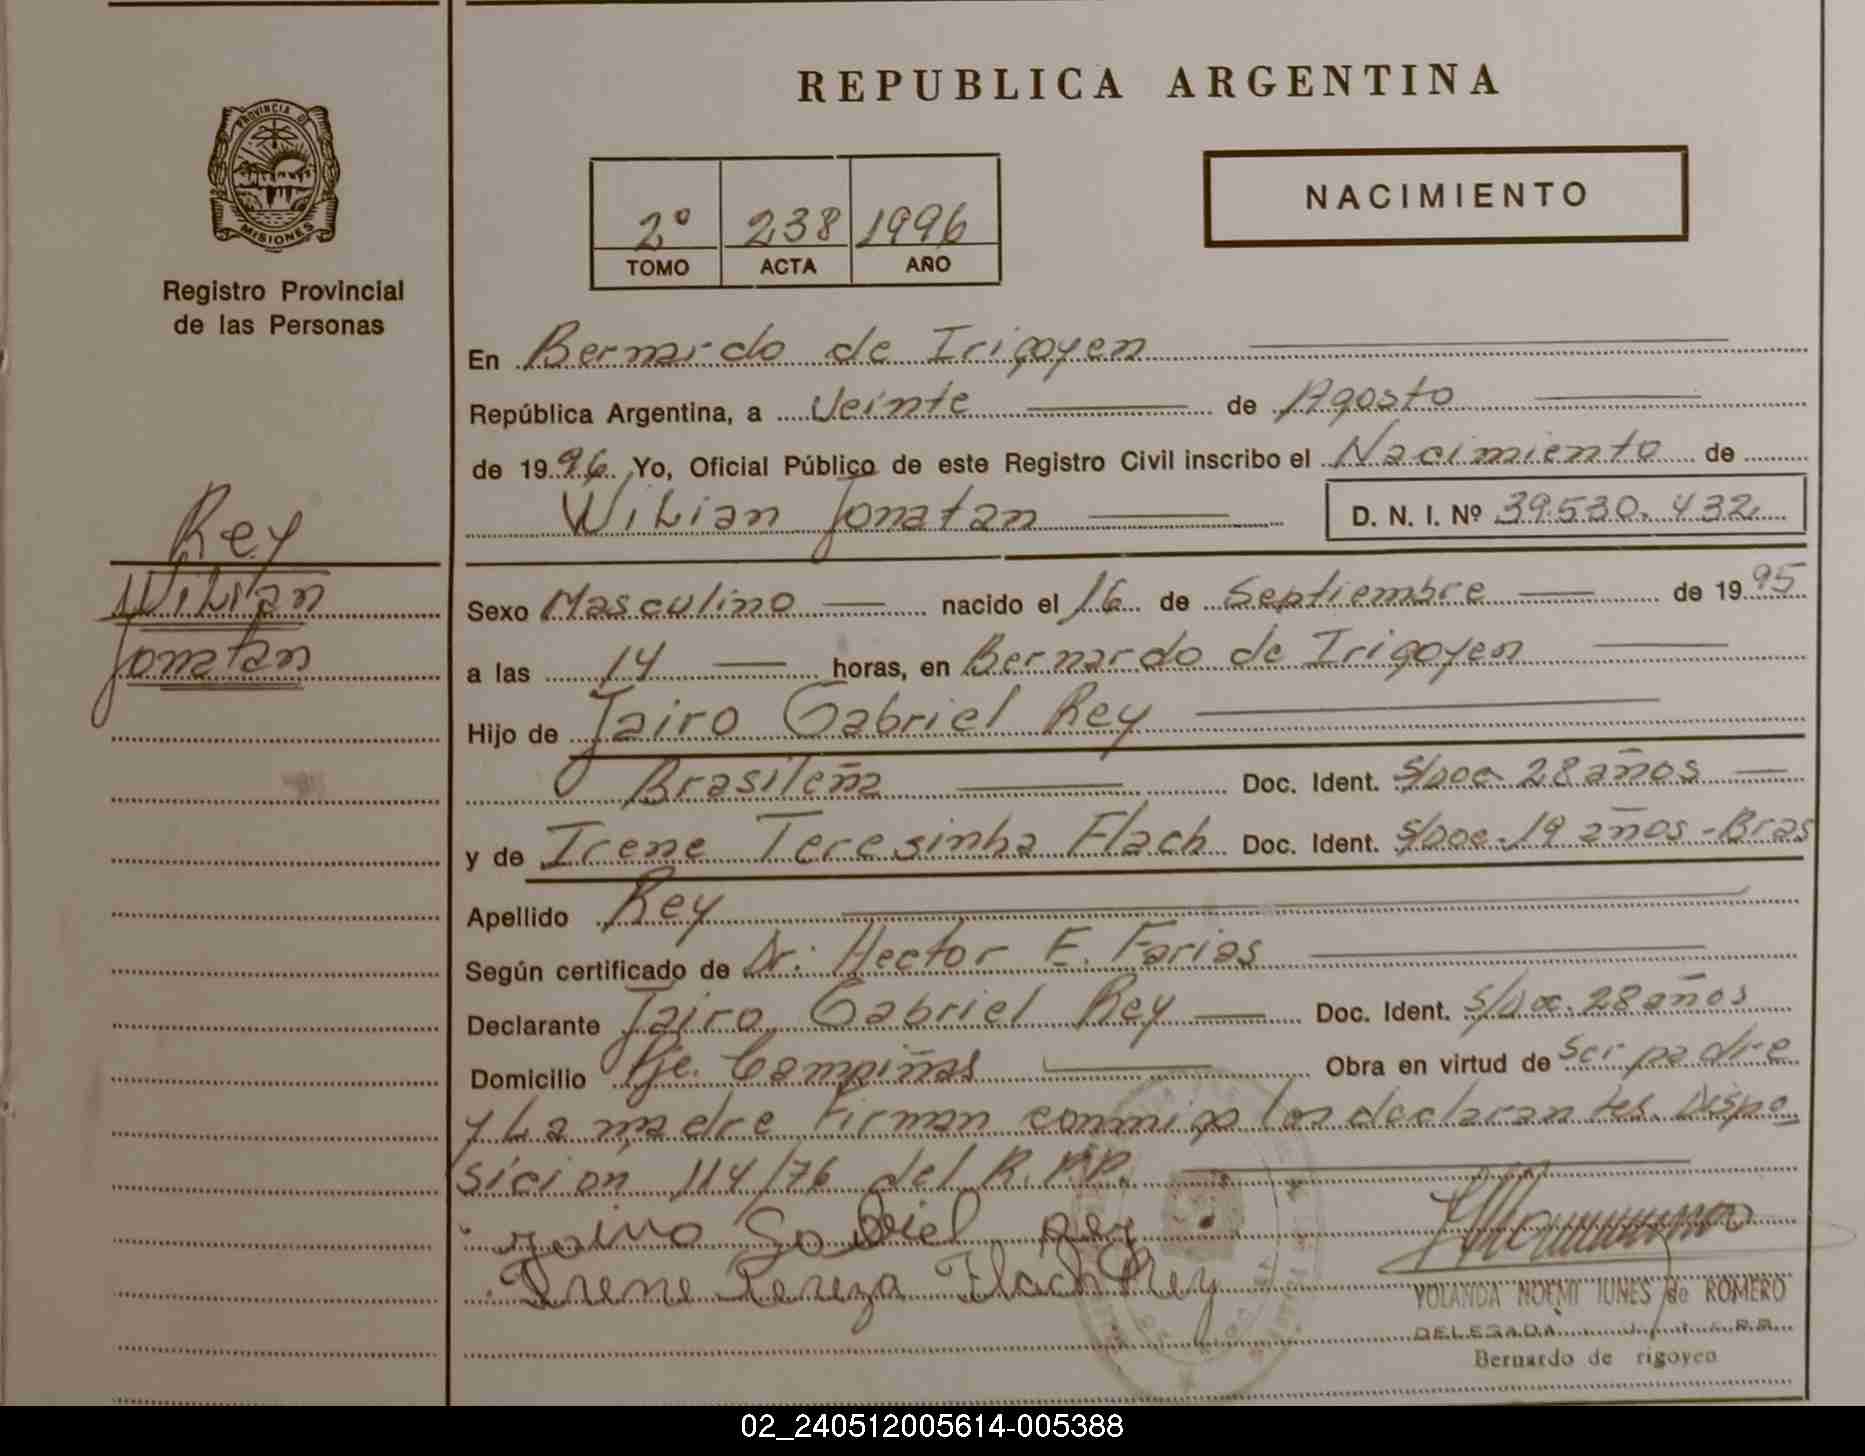 REPUBLICA ARGENTINA
PROVINCIA DE
MISIONES
Registro Provincial
de las Personas
NACIMIENTO
2º 238 1996
TOMO ACTA AÑO
En Bernardo de Irigoyen
República Argentina, a Veinte de Agosto
de 1996. Yo, Oficial Público de este Registro Civil inscribo el Nacimiento de
Wilian Jonatan D. N. I. Nº 39.530.432
Rey
Wilian
Jonatan
Sexo Masculino nacido el 16 de Septiembre de 1995
a las 14 horas, en Bernardo de Irigoyen
Hijo de Jairo Gabriel Rey
Brasileña Doc. Ident. S/Doc. 28 años
y de Irene Teresinha Flach Doc. Ident. S/Doc. 19 años - Bras
Apellido Rey
Según certificado de Dr: Hector E. Farias
Declarante Jairo Gabriel Rey Doc. Ident. S/Doc. 28 años
Domicilio Pje. Campiñas Obra en virtud de Ser padre
y La madre Firman conmigo los declarantes. Dispo
sicion 114/76 del R.P.P.
Jairo Gabriel Rey
Irene Tereza Flach Rey
YOLANDA NOEMI IUNES de ROMERO
DELEGADA
Bernardo de rigoyen
02_240512005614-005388